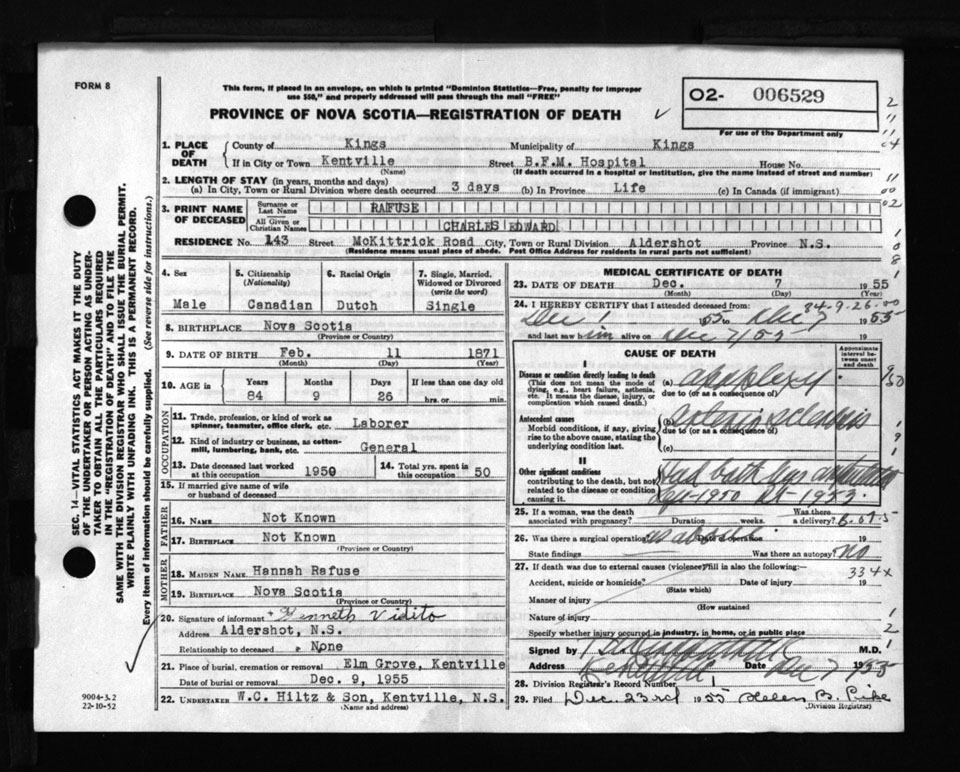 FORM 8
This form, if placed in an envelope, on which is printed "Dominion Statistics—Free, penalty for improper
use $50," and properly addressed will pass through the mail "FREE"
PROVINCE OF NOVA SCOTIA—REGISTRATION OF DEATH
O2- 006529
For use of the Department only
1. PLACE OF DEATH
County of Kings Municipality of Kings
If in City or Town Kentville Street B.F.M. Hospital House No.
(Name) (If death occurred in a hospital or institution, give the name instead of street and number)
2. LENGTH OF STAY (in years, months and days)
(a) In City, Town or Rural Division where death occurred 3 days (b) In Province Life (c) In Canada (if immigrant)
3. PRINT NAME OF DECEASED
Surname or Last Name RAFUSE
All Given or Christian Names CHARLES EDWARD
RESIDENCE No. 143 Street McKittrick Road City, Town or Rural Division Aldershot Province N.S.
(Residence means usual place of abode. Post Office Address for residents in rural parts not sufficient)
4. Sex
Male
5. Citizenship
(Nationality)
Canadian
6. Racial Origin
Dutch
7. Single, Married, Widowed or Divorced
(write the word)
Single
8. BIRTHPLACE Nova Scotia
(Province or Country)
9. DATE OF BIRTH Feb. 11 1871
(Month) (Day) (Year)
10. AGE in Years Months Days If less than one day old
84 9 26 hrs. or min.
OCCUPATION
11. Trade, profession, or kind of work as
spinner, teamster, office clerk, etc. Laborer
12. Kind of industry or business, as cotton-
mill, lumbering, bank, etc. General
13. Date deceased last worked
at this occupation 1950
14. Total yrs. spent in
this occupation 50
15. If married give name of wife
or husband of deceased
FATHER
16. NAME Not Known
17. BIRTHPLACE Not Known
(Province or Country)
MOTHER
18. MAIDEN NAME Hannah Rafuse
19. BIRTHPLACE Nova Scotia
(Province or Country)
20. Signature of informant + Kenneth Vidito
Address Aldershot, N.S.
Relationship to deceased None
21. Place of burial, cremation or removal Elm Grove, Kentville
Date of burial or removal Dec. 9, 1955
22. UNDERTAKER W.C. Hiltz & Son, Kentville, N.S.
(Name and Address)
MEDICAL CERTIFICATE OF DEATH
23. DATE OF DEATH Dec. 7 1955
(Month) (Day) (Year)
84-9-26-00
24. I HEREBY CERTIFY that I attended deceased from
Dec 1 1955 to Dec 7 1955
and last saw him alive on Dec 7/55 19
CAUSE OF DEATH
Approximate interval between onset and death
I
Disease or condition directly leading to death
(This does not mean the mode of
dying, e.g., heart failure, asthenia,
etc. It means the disease, injury, or
complication which caused death.)
(a) apoplexy
due to (or as a consequence of)
Antecedent causes
Morbid conditions, if any, giving
rise to the above cause, stating the
underlying condition last.
(b)
due to (or as a consequence of)
(c)
II
Other significant conditions
contributing to the death, but not
related to the disease or condition
causing it.
Had both legs amputated
1950 1953.
25. If a woman, was the death Was there
associated with pregnancy? Duration weeks. a delivery?
26. Was there a surgical operation? as above Date of operation 19
State findings Was there an autopsy? no
27. If death was due to external causes (violence) fill in also the following:—
334x
Accident, suicide or homicide? Date of injury 19
(State which)
Manner of injury
(How sustained)
Nature of injury
Specify whether injury occurred in industry, in home, or in public place
Signed by M.D.
Address Kentville Date Dec 7 1955
28. Division Registrar's Record Number
29. Filed Dec. 23rd 1955 Helen B. Pike
(Division Registrar)
SEC. 14—VITAL STATISTICS ACT MAKES IT THE DUTY
OF THE UNDERTAKER OR PERSON ACTING AS UNDER-
TAKER TO OBTAIN ALL THE PARTICULARS REQUIRED
IN THE "REGISTRATION OF DEATH" AND TO FILE THE
SAME WITH THE DIVISION REGISTRAR WHO SHALL ISSUE THE BURIAL PERMIT.
WRITE PLAINLY WITH UNFADING INK. THIS IS A PERMANENT RECORD.
Every item of information should be carefully supplied. (See reverse side for instructions.)
9004-3.2
22-10-52